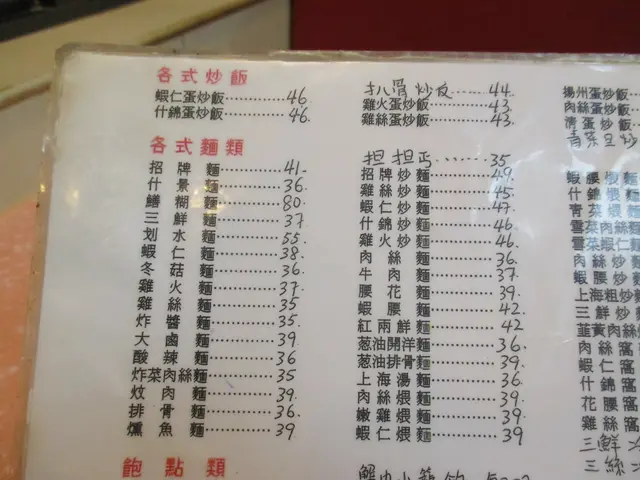 各式炒飯
蝦仁蛋炒飯 46
什錦蛋炒飯 46
各式麵類
招牌麵 41
什景麵 36
鱔糊麵 80
三鮮麵 37
划水麵 55
蝦仁麵 38
冬菇麵 36
雞火麵 37
雞絲麵 35
炸醬麵 35
大鹵麵 39
酸辣麵 36
炸菜肉絲麵 35
炆肉麵 39
排骨麵 36
燻魚麵 39
飽點類
扒骨炒反 44
雞火蛋炒飯 43
雞絲蛋炒飯 43
担担丏 35
招牌炒麵 49
雞絲炒麵 45
蝦仁炒麵 47
什錦炒麵 46
雞火炒麵 46
肉絲麵 36
牛肉麵 37
腰花麵 39
蝦腰麵 42
紅兩鮮麵 42
蔥油開洋麵 36
蔥油排骨麵 39
上海湯麵 36
肉絲煨麵 39
嫩雞煨麵 39
蝦仁煨麵 39
揚州蛋炒飯
肉絲蛋炒飯
清蛋炒飯
蝦腰
什錦煨
青菜煨
雪菜肉絲
雪菜蝦仁
肉絲炒
蝦腰炒
上海粗炒
三鮮炒
韮黃肉絲
肉絲窩
蝦仁窩
什錦窩
花腰窩
雞絲窩
三鮮
三絲